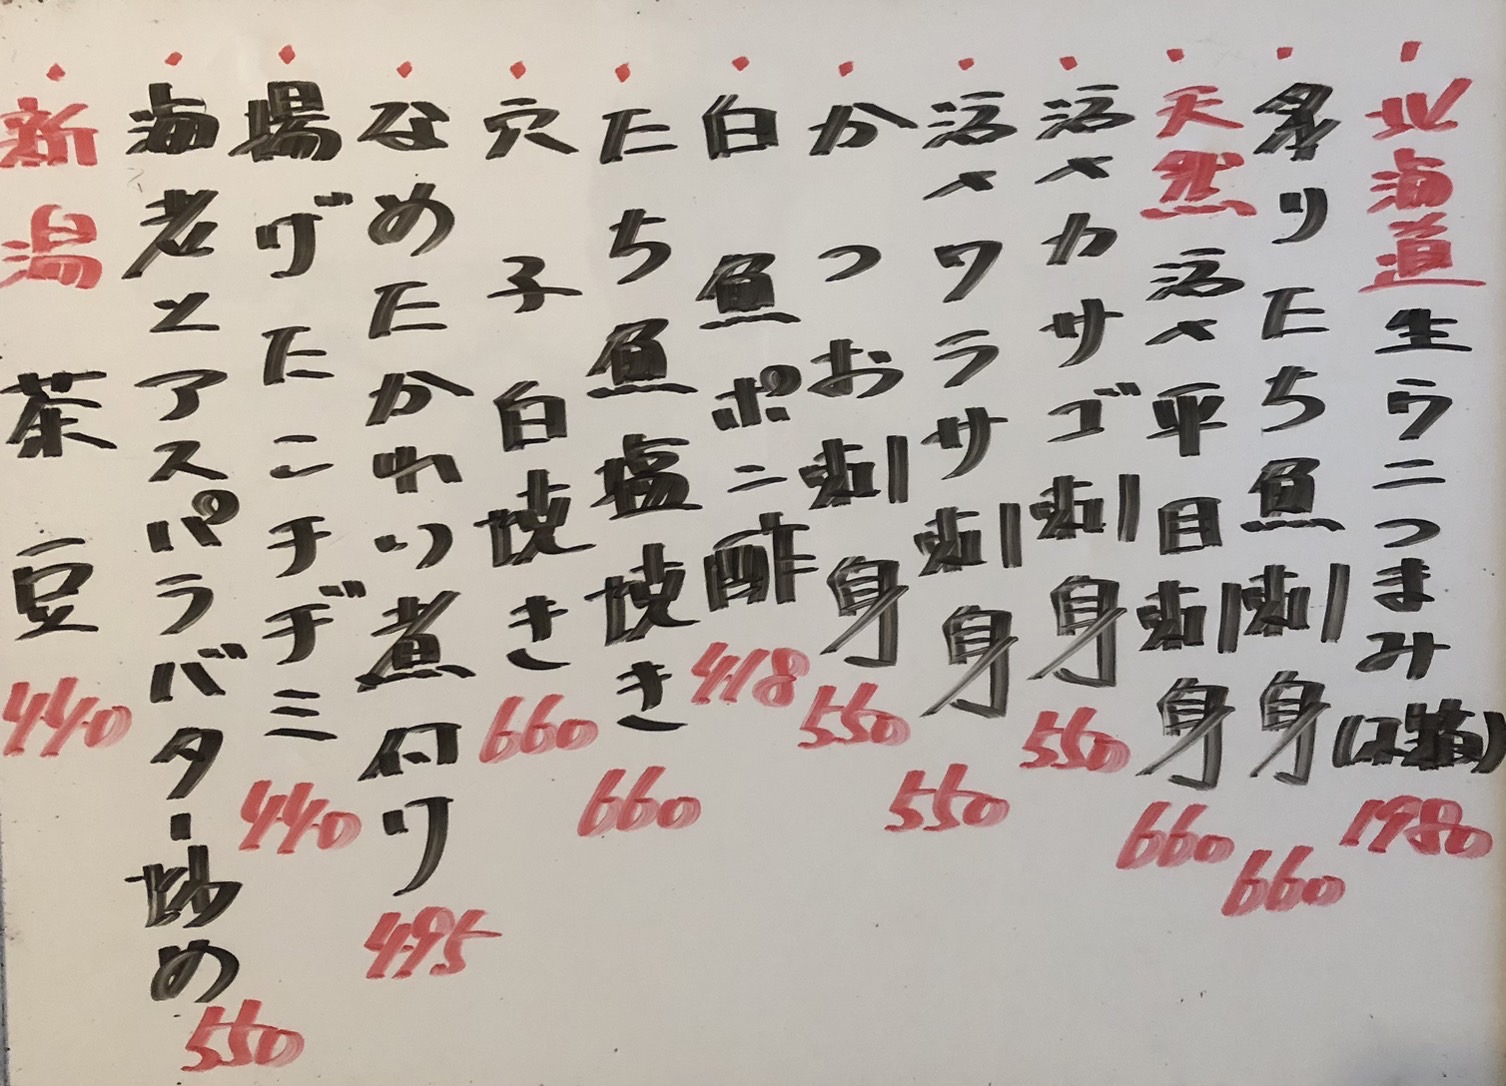 ・北海道生ウニつまみ 1980
・炙りたち魚刺身 660
・天然活〆平目刺身 660
・活〆カサゴ刺身 550
・活〆ワラサ刺身 550
・かつお刺身 550
・白魚ポン酢 418
・たち魚塩焼き 660
・穴子白焼き 660
・なめたかれい煮付け 495
・揚げたこチヂミ 440
・海老とアスパラバター炒め 550
・新潟茶豆 440